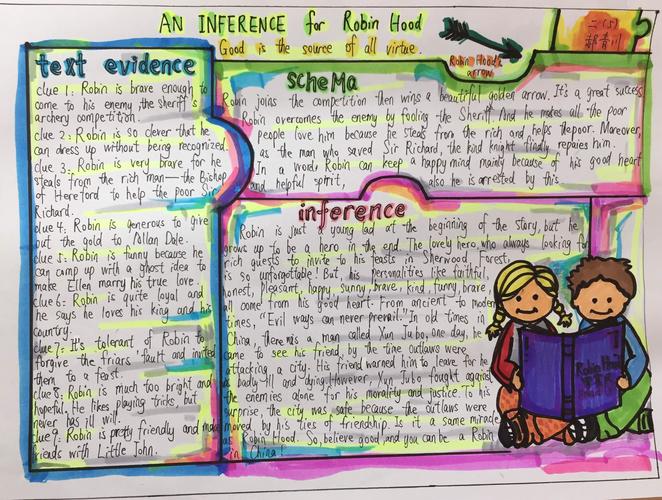 AN INFERENCE for Robin Hood
Good is the source of all virtue.
Robin Hood's
arrow
二(5)
郝青川
text evidence
clue 1: Robin is brave enough to
come to his enemy the sheriff's
archery competition.
clue 2: Robin is so clever that he
can dress up without being recognized.
clue 3: Robin is very brave for he
steals from the rich man—the Bishop
of Hereford to help the poor Sir
Richard.
clue 4: Robin is generous to give
out the gold to Allan Dale.
clue 5: Robin is funny because he
can camp up with a ghost idea to
make Ellen marry his true love.
clue 6: Robin is quite loyal and
he says he loves his king and his
country.
clue 7: It's tolerant of Robin to
forgive the friars' fault and invited
them to a feast.
clue 8: Robin is much too bright and
hopeful. He likes playing tricks, but
never has ill will.
clue 9: Robin is pretty friendly and make
friends with Little John.
scheMa
Robin joins the competition then wins a beautiful golden arrow. It's a great success
Robin overcomes the enemy by fooling the Sheriff. And he makes all the poor
people love him because he steals from the rich and helps the poor. Moreover,
as the man who saved Sir Richard, the kind knight finally repaies him.
In a word, Robin can keep a happy mind mainly because of his good heart
and helpful spirit, also he is arrested by this.
inference
Robin is just a young lad at the beginning of the story, but he
grows up to be a hero in the end. The lovely hero who always looking for
rich guests to invite to his feasts in Sherwood Forest,
is so unforgottable! But his personalities like faithful,
honest, pleasant, happy, sunny, brave, kind, funny, brave,
all come from his good heart. From ancient to modern
times, "Evil ways can never prevail." In old times in
China, there is a man called Xun Jubo, one day, he
came to see his friend by the time outlaws were
attacking a city. His friend warned him to leave for he
was badly ill and dying. However, Xun Jubo fought against
the enemies alone for his morality and justice. To his
surprise, the city was safe because the outlaws were
moved by his ties of friendship. Is it a same miracle
as Robin Hood. So, believe good and you can be a Robin
in China!
Robin Hood